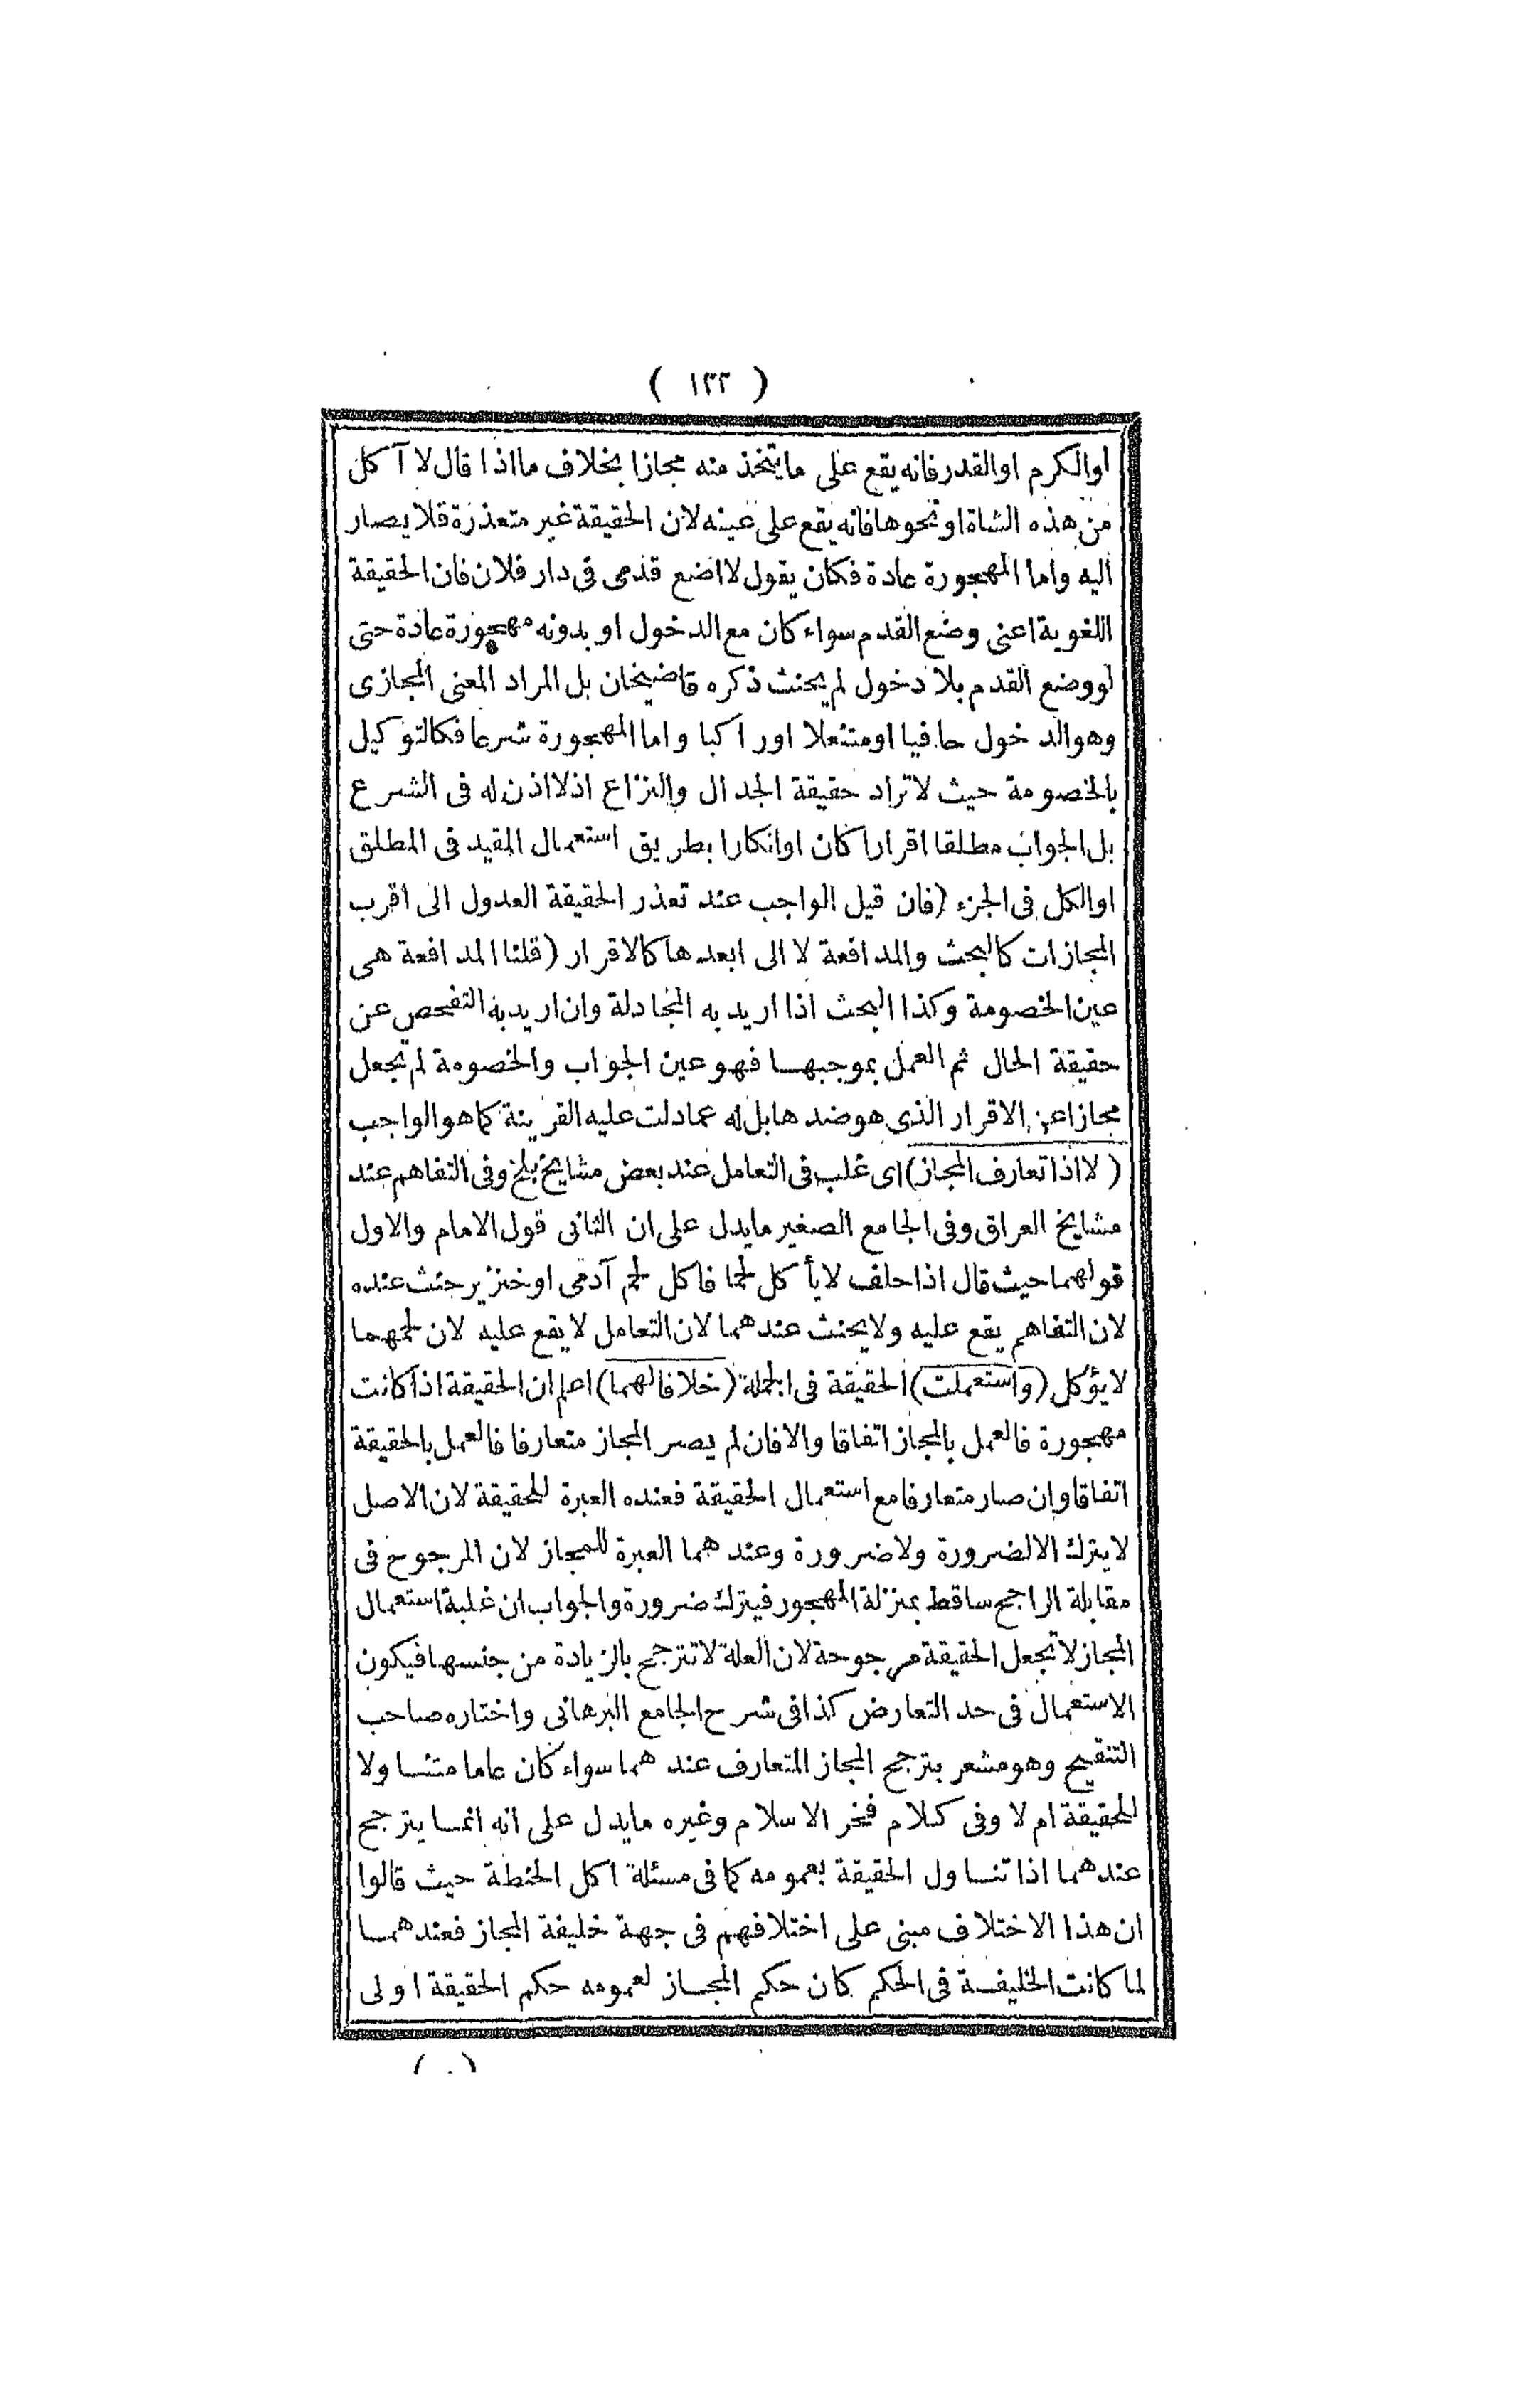 ( ١٢٢ )
اوالكرم اوالقدر فانه يقع على مايتخذ منه مجازا بخلاف مااذا قال لا آكل
من هذه الشاة او نحوها فانه يقع على عينه لان الحقيقة غير متعذرة فلا يصار
اليه واما المهجورة عادة فكان يقول لااضع قدمى فى دار فلان فان الحقيقة
اللغوية اعنى وضع القدم سواء كان مع الدخول او بدونه مهجورة عادة حتى
لو وضع القدم بلا دخول لم يحنث ذكره قاضيخان بل المراد المعنى المجازى
وهو الدخول حافيا اومتنعلا اوراكبا واما المهجورة شرعا فكالتوكيل
بالخصومة حيث لاتراد حقيقة الجدال والنزاع اذلااذن له فى الشرع
بل الجواب مطلقا اقرارا كان اوانكارا بطريق استعمال المقيد فى المطلق
اوالكل فى الجزء (فان قيل الواجب عند تعذر الحقيقة العدول الى اقرب
المجازات كالبحث والمدافعة لا الى ابعدها كالاقرار (قلنا المدافعة هى
عين الخصومة وكذا البحث اذا اريد به المجادلة وان اريد به التفحص عن
حقيقة الحال ثم العمل بموجبها فهو عين الجواب والخصومة لم تجعل
مجازا عن الاقرار الذى هو ضدها بل له عمادلت عليه القرينة كماهو الواجب
( لا اذا تعارف المجاز) اى غلب فى التعامل عند بعض مشايخ بلخ وفى التفاهم عند
مشايخ العراق وفى الجامع الصغير مايدل على ان الثانى قول الامام والاول
قولهما حيث قال اذا حلف لايأكل لحما فاكل لحم آدمى اوخنزير حنث عنده
لان التفاهم يقع عليه ولايحنث عندهما لان التعامل لايقع عليه لان لحمهما
لايؤكل (واستعملت) الحقيقة فى الجملة (خلافا لهما) اعلم ان الحقيقة اذا كانت
مهجورة فالعمل بالمجاز اتفاقا والا فان لم يصر المجاز متعارفا فالعمل بالحقيقة
اتفاقا وان صار متعارفا مع استعمال الحقيقة فعنده العبرة للحقيقة لان الاصل
لايترك الا لضرورة ولاضرورة وعندهما العبرة للمجاز لان المرجوح فى
مقابلة الراجح ساقط بمنزلة المهجور فيترك ضرورة والجواب ان غلبة استعمال
المجاز لاتجعل الحقيقة مرجوحة لان العلة لاتترجح بالزيادة من جنسها فيكون
الاستعمال فى حد التعارض كذا فى شرح الجامع البرهانى واختاره صاحب
التنقيح وهو مشعر بترجح المجاز المتعارف عندهما سواء كان عاما متنسا ولا
للحقيقة ام لا وفى كلام فخر الاسلام وغيره مايدل على انه انما يترجح
عندهما اذا تناول الحقيقة بعمومه كما فى مسئلة اكل الحنطة حيث قالوا
ان هذا الاختلاف مبنى على اختلافهم فى جهة خليفة المجاز فعندهما
لما كانت الخليفة فى الحكم كان حكم المجاز لعمومه حكم الحقيقة اولى